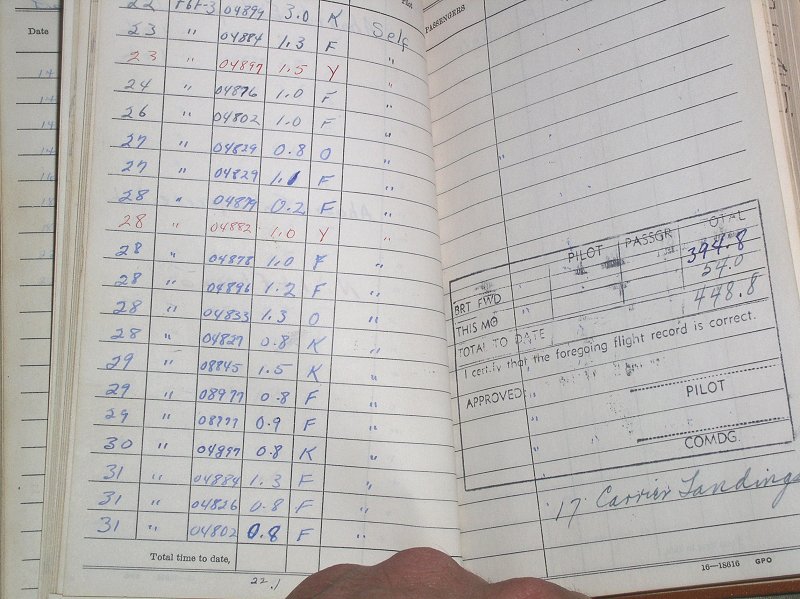 Date
Pilot
22 F6F-3 04897 3.0 K Self
23 " 04884 1.3 F "
23 " 04897 1.5 Y "
24 " 04876 1.0 F "
26 " 04802 1.0 F "
27 " 04829 0.8 O "
27 " 04829 1.1 F "
28 " 04879 0.2 F "
28 " 04882 1.0 Y "
28 " 04878 1.0 F "
28 " 04896 1.2 F "
28 " 04833 1.3 O "
28 " 04827 0.8 K "
29 " 08845 1.5 K "
29 " 08977 0.8 F "
29 " 08977 0.9 F "
30 " 04897 0.8 K "
31 " 04884 1.3 F "
31 " 04826 0.8 F "
31 " 04802 0.8 F "
Total time to date,
22.1
PASSENGERS
PILOT PASSGR TOTAL
BRT FWD 394.8
THIS MO 54.0
TOTAL TO DATE 448.8
I certify that the foregoing flight record is correct.
APPROVED:
PILOT
COMDG.
17 Carrier Landings
16—18616 GPO